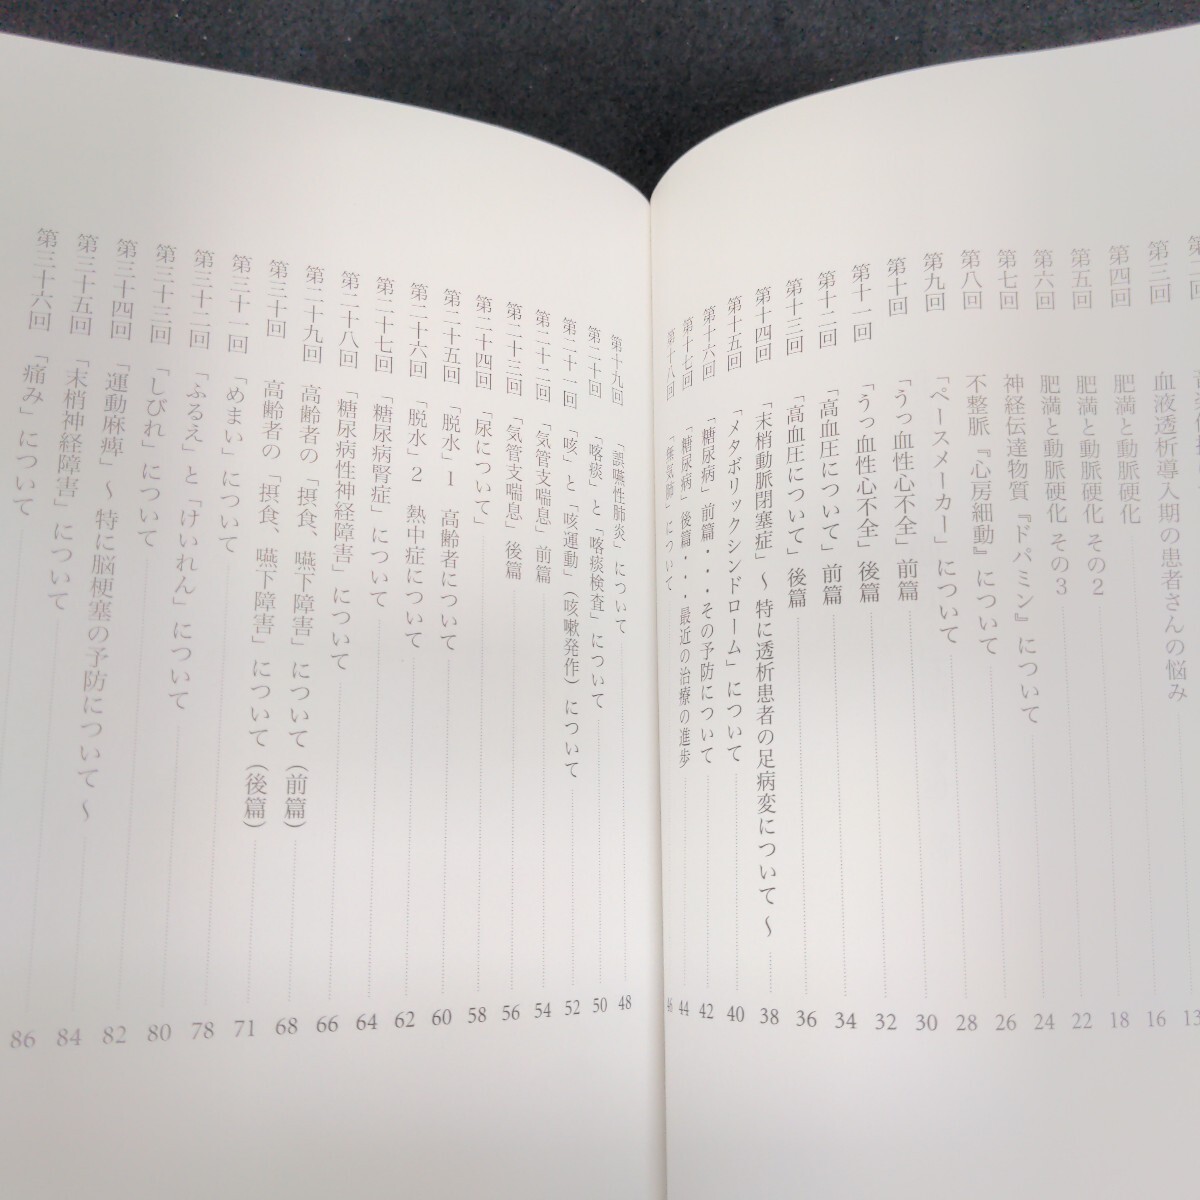 第三回 血液透析導入期の患者さんの悩み 13
第四回 肥満と動脈硬化 16
第五回 肥満と動脈硬化 その2 18
第六回 肥満と動脈硬化 その3 22
第七回 神経伝達物質『ドパミン』について 24
第八回 不整脈『心房細動』について 26
第九回 「ペースメーカー」について 28
第十回 「うっ血性心不全」前篇 30
第十一回 「うっ血性心不全」後篇 32
第十二回 「高血圧について」前篇 34
第十三回 「高血圧について」後篇 36
第十四回 「末梢動脈閉塞症」～特に透析患者の足病変について～ 38
第十五回 「メタボリックシンドローム」について 40
第十六回 「糖尿病」前篇・・・その予防について 42
第十七回 「糖尿病」後篇・・・最近の治療の進歩 44
第十八回 「無気肺」について 46
第十九回 「誤嚥性肺炎」について 48
第二十回 「喀痰」と「喀痰検査」について 50
第二十一回 「咳」と「咳運動」(咳嗽発作)について 52
第二十二回 「気管支喘息」前篇 54
第二十三回 「気管支喘息」後篇 56
第二十四回 「尿について」 58
第二十五回 「脱水」1 高齢者について 60
第二十六回 「脱水」2 熱中症について 62
第二十七回 「糖尿病腎症」について 64
第二十八回 「糖尿病性神経障害」について 66
第二十九回 高齢者の「摂食、嚥下障害」について(前篇) 68
第三十回 高齢者の「摂食、嚥下障害」について(後篇) 71
第三十一回 「めまい」について 78
第三十二回 「ふるえ」と「けいれん」について 80
第三十三回 「しびれ」について 82
第三十四回 「運動麻痺」～特に脳梗塞の予防について～ 84
第三十五回 「末梢神経障害」について 86
第三十六回 「痛み」について